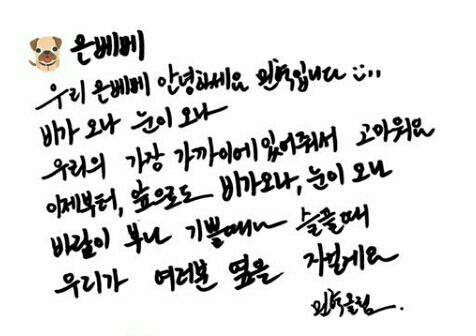 은베베
우리 은베베 안녕하세요 민혁입니다
비가 오나 눈이 오나
우리의 가장 가까이에 있어줘서 고마워요
이제부터, 앞으로도 비가오나, 눈이 오나
바람이 부나 기쁠때나 슬플때
우리가 여러분 옆을 지킬게요
민혁올림.